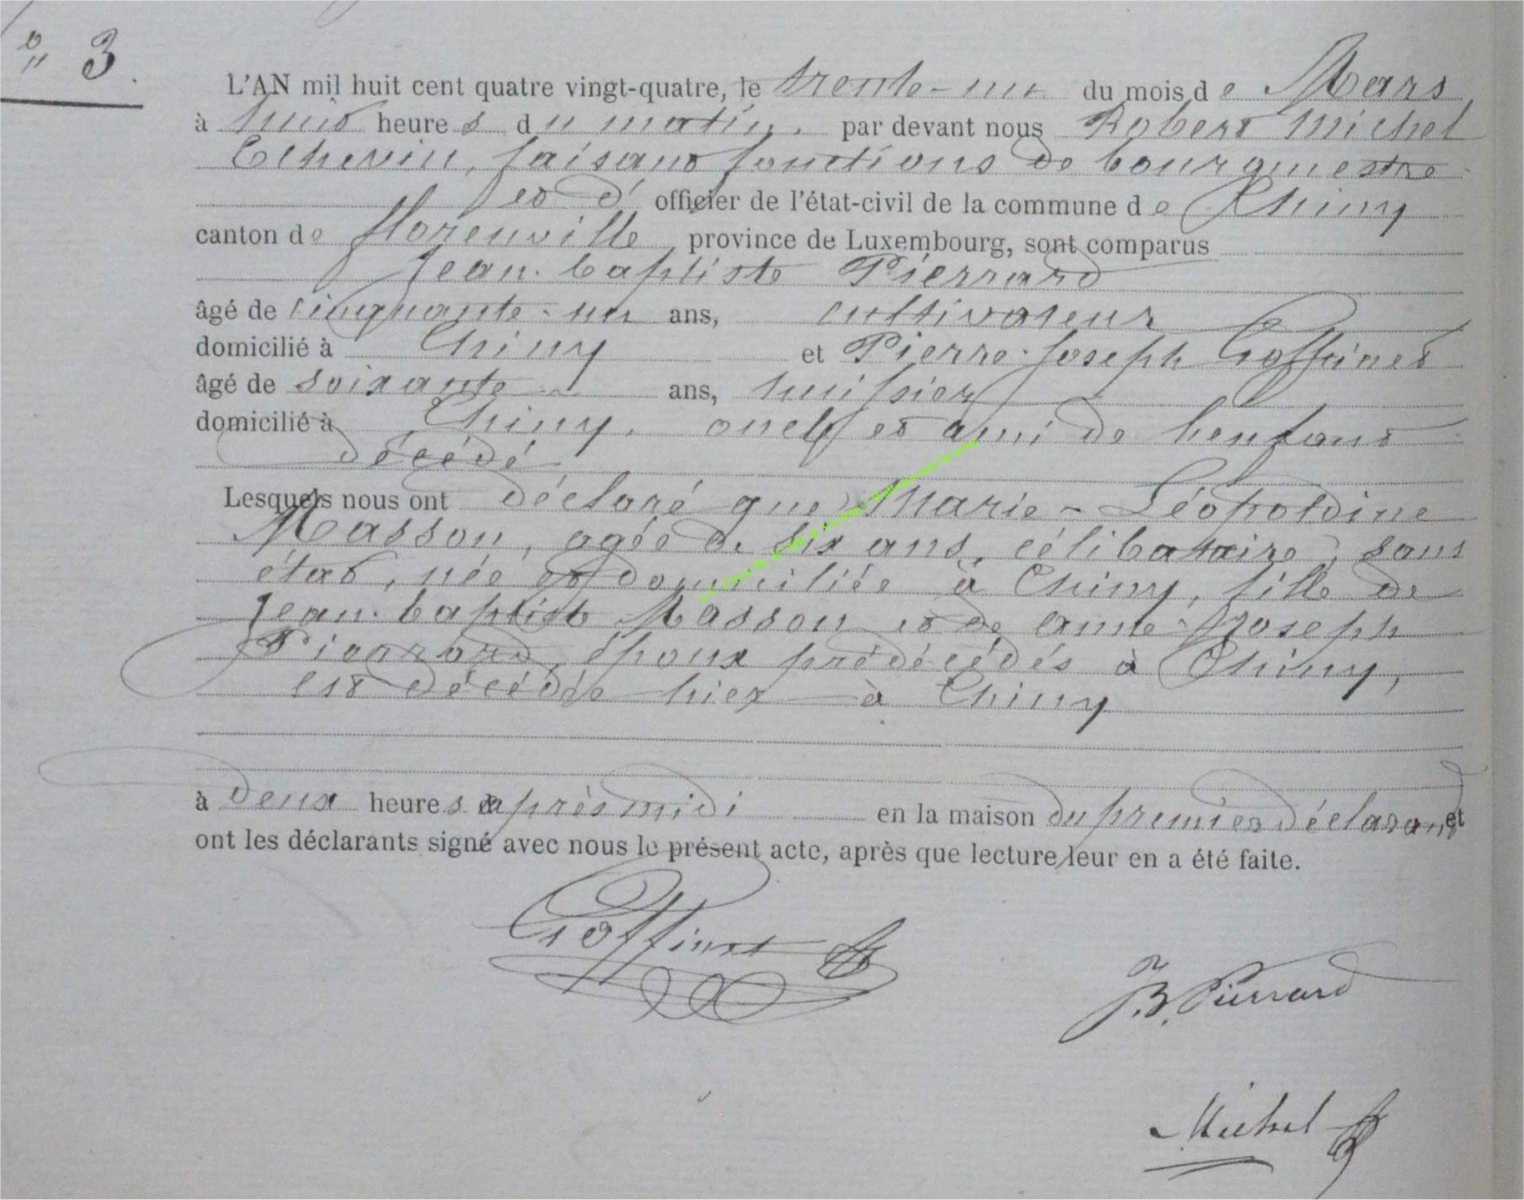 N° 3.
L'AN mil huit cent quatre vingt-quatre, le trente-un du mois de Mars
à huit heures du matin, par devant nous Robert Michel
Echevin, faisant fonctions de bourgmestre
et d' officier de l'état-civil de la commune de Chiny
canton de florenville, province de Luxembourg, sont comparus
Jean-baptiste Pierrard
âgé de cinquante-un ans, cultivateur
domicilié à Chiny et Pierre-Joseph Goffinet
âgé de soixante ans, huissier
domicilié à Chiny, oncle et ami de l'enfant
décédé
Lesquels nous ont déclaré que Marie-Léopoldine
Masson, agée de six ans, célibataire, sans
état, née et domiciliée à Chiny, fille de
Jean-baptiste Masson et de anne-Joseph
Pierrard, époux prédécédés à Chiny,
est décédée hier à Chiny
à deux heures après midi en la maison du premier déclarant et
ont les déclarants signé avec nous le présent acte, après que lecture leur en a été faite.
Goffinet
J.B. Pierrard
Michel